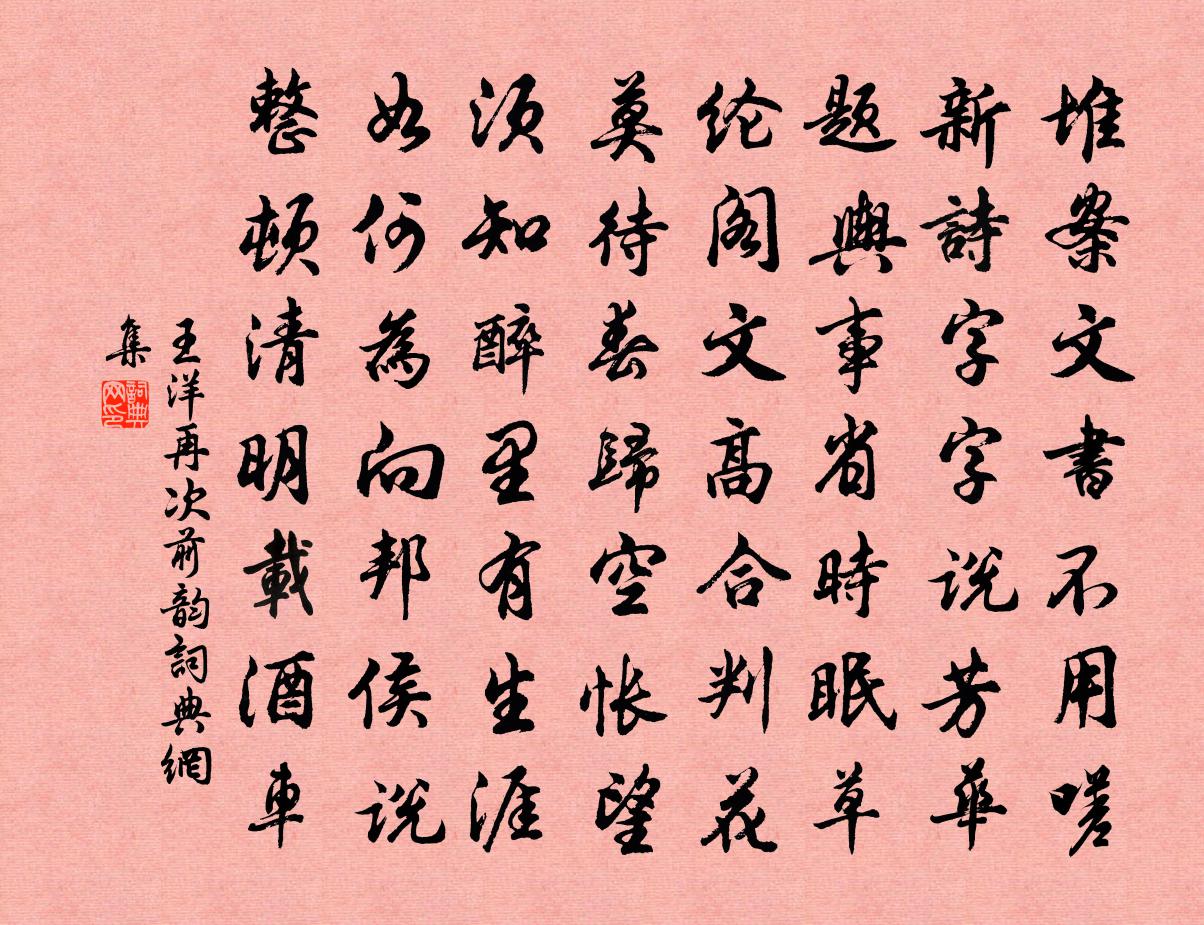 堆案文書不用嗟
新詩字字説芳華
題輿事省時眠草
纶阁文高合判花
莫待春歸空怅望
须知醉里有生涯
如何為向邦侯説
整頓清明載酒車
王洋再次前韵詞典網
集
詞典
网印